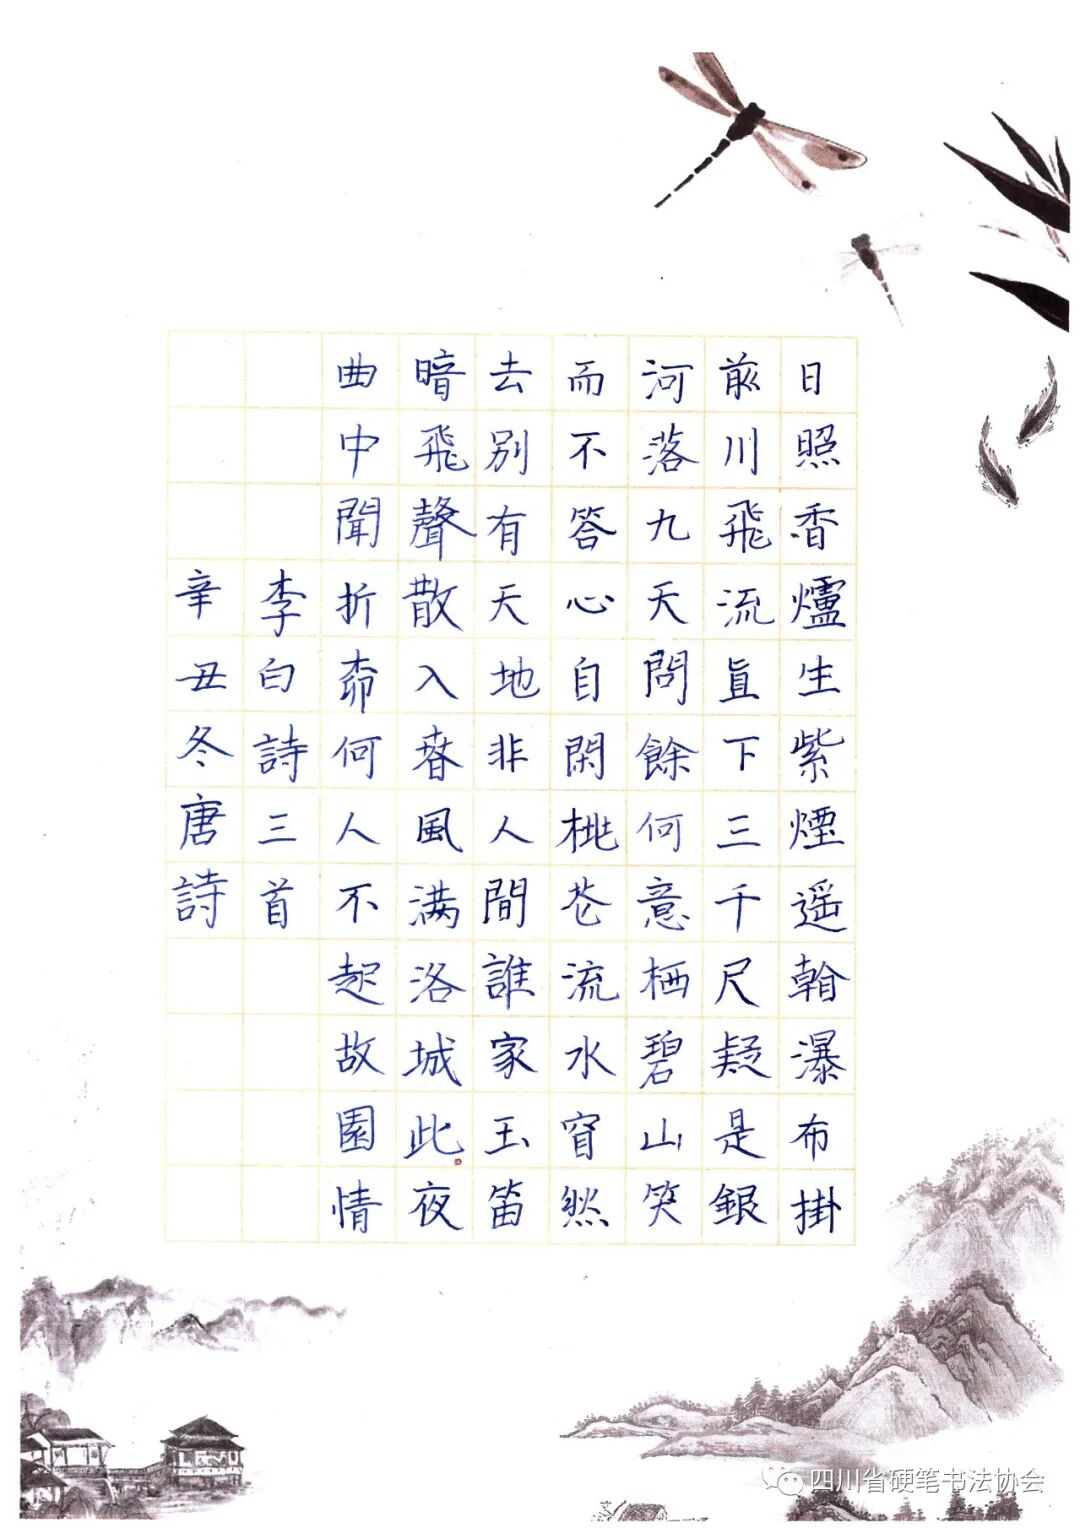 日照香爐生紫煙遥看瀑布掛
前川飛流直下三千尺疑是銀
河落九天問餘何意栖碧山笑
而不答心自閑桃花流水窅然
去別有天地非人間誰家玉笛
暗飛聲散入春風满洛城此夜
曲中聞折柳何人不起故園情
李白詩三首
辛丑冬唐詩
四川省硬笔书法协会